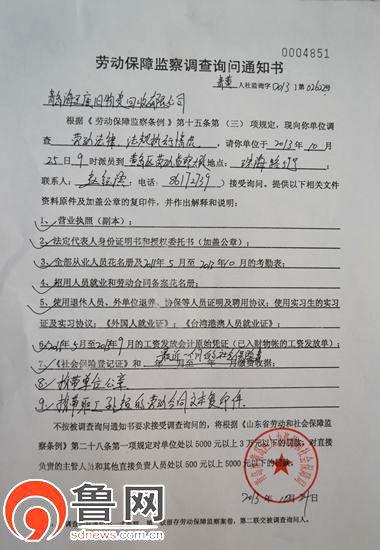 0004851
劳动保障监察调查询问通知书
青黄 人社监询字〔2013〕第02602号
根据《劳动保障监察条例》第十五条第(三)项规定,现向你单位调
查 劳动法律、法规执行情况 。请你单位于 2013 年 10 月
25 日 9 时派员到 地点:珠海路
联系人: 电话:86172739)接受询问。提供以下相关文件
资料原件及加盖公章的复印件,并作出解释和说明:
1、营业执照(副本);
2、法定代表人身份证明书和授权委托书(加盖公章);
3、全部从业人员花名册及2011年5月至2013年10月的考勤表;
4、招用人员就业和劳动合同备案花名册;
5、使用退休人员、外单位退养、协保等人员证明及聘用协议;使用实习生的实习
证及实习协议;《外国人就业证》;《台湾港澳人员就业证》;
6、2011年5月至2013年9月的工资发放会计原始凭证(已入财物帐的工资发放单);
7、《社会保险登记证》和 年 月至 年 月缴费收据;
8、携带单位公章
9、携带职工 的劳动合同文本复印件
不按被调查询问通知书要求接受调查询问的,将根据《山东省劳动和社会保障
监察条例》第二十八条第一项规定对单位处以 5000 元以上 3 万元以下的罚款,对直接
负责的主管人员和其他直接负责人员处以 500 元以上 5000 元以下的罚款。
2013 年 10 月 日
以留存劳动保障监察案卷,第二联交被调查询问人。
鲁网
sdnews.com.cn